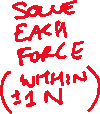 SOLVE
EACH
FORCE
(WITHIN
±1N)